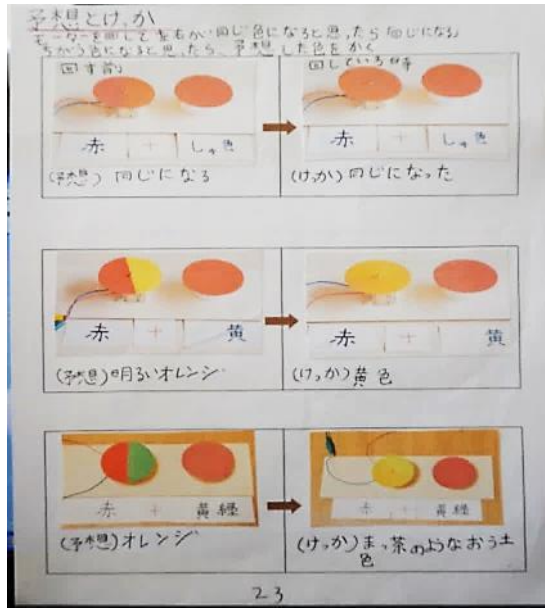 予想とけっか
モーターを回して左右が同じ色になると思ったら「同じになる」
ちがう色になると思ったら、予想した色をかく
回す前
赤 + しゅ色
(予想) 同じになる
回している時
赤 + しゅ色
(けっか) 同じになった
赤 + 黄
(予想) 明るいオレンジ
赤 + 黄
(けっか) 黄色
赤 + 黄緑
(予想) オレンジ
赤 + 黄緑
(けっか) まっ茶のようなおう土
色
23